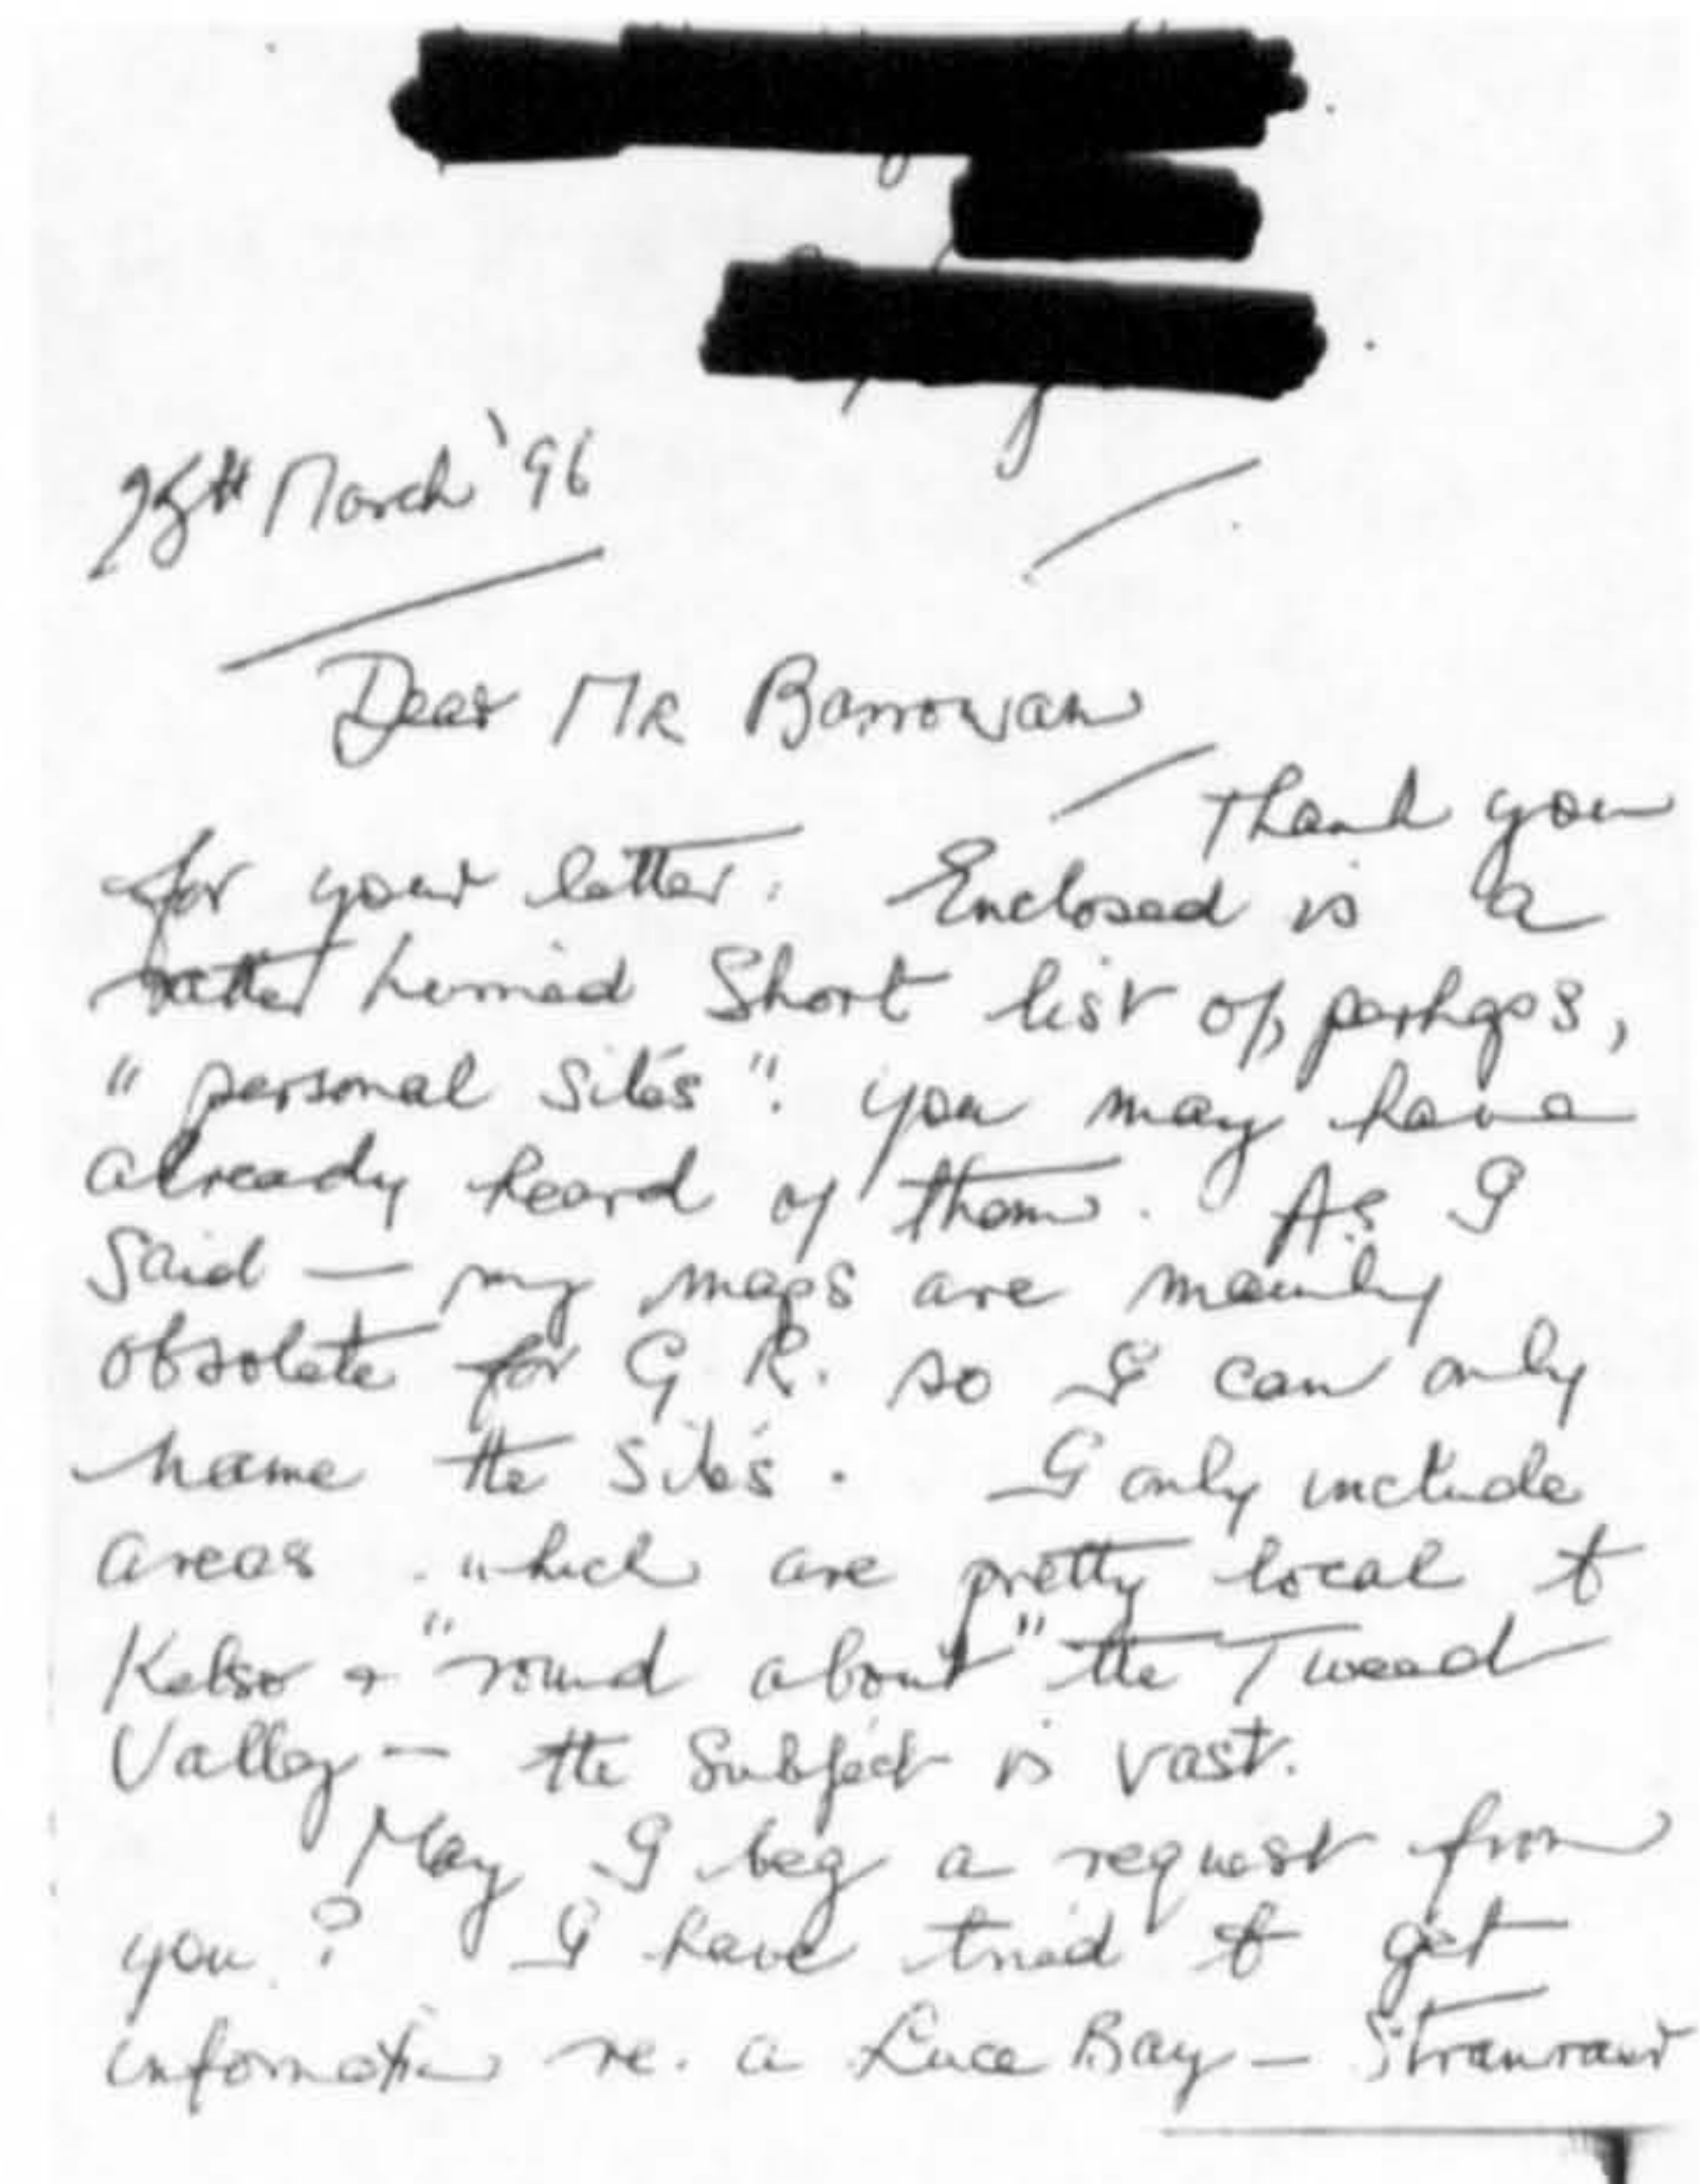 March '96
Dear MR Barrowman
Thank you
for your letter. Enclosed is a
rather hurried Short list of, perhaps,
"personal sites". you may have
already heard of them. As I
said — my maps are mainly
obsolete for G.R. so I can only
name the sites. I only include
areas which are pretty local to
Kelso + "round about" the Tweed
Valley — the Subject is vast.
May I beg a request from
you? I have tried to get
information re. a Luce Bay — Stranraer